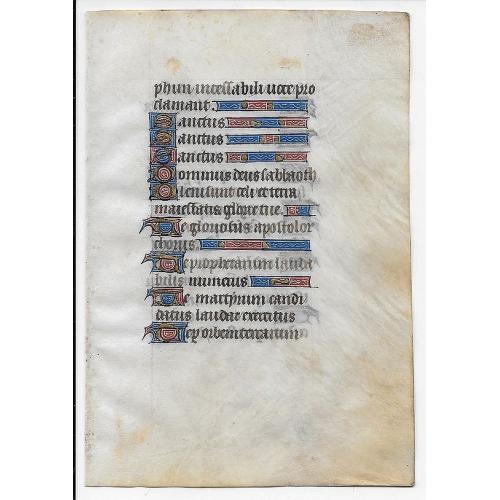 phin incessabili uoce pro
clamant.
Sanctus
Sanctus
Sanctus
Dominus deus sabbaoth
Pleni sunt celi et terra
maiestatis glorie tue.
Te gloriosus apostolor
chorus
Te prophetarum lauda
bilis numerus
Te martyrum candi
datus laudat exercitus
Te per orbem terrarum